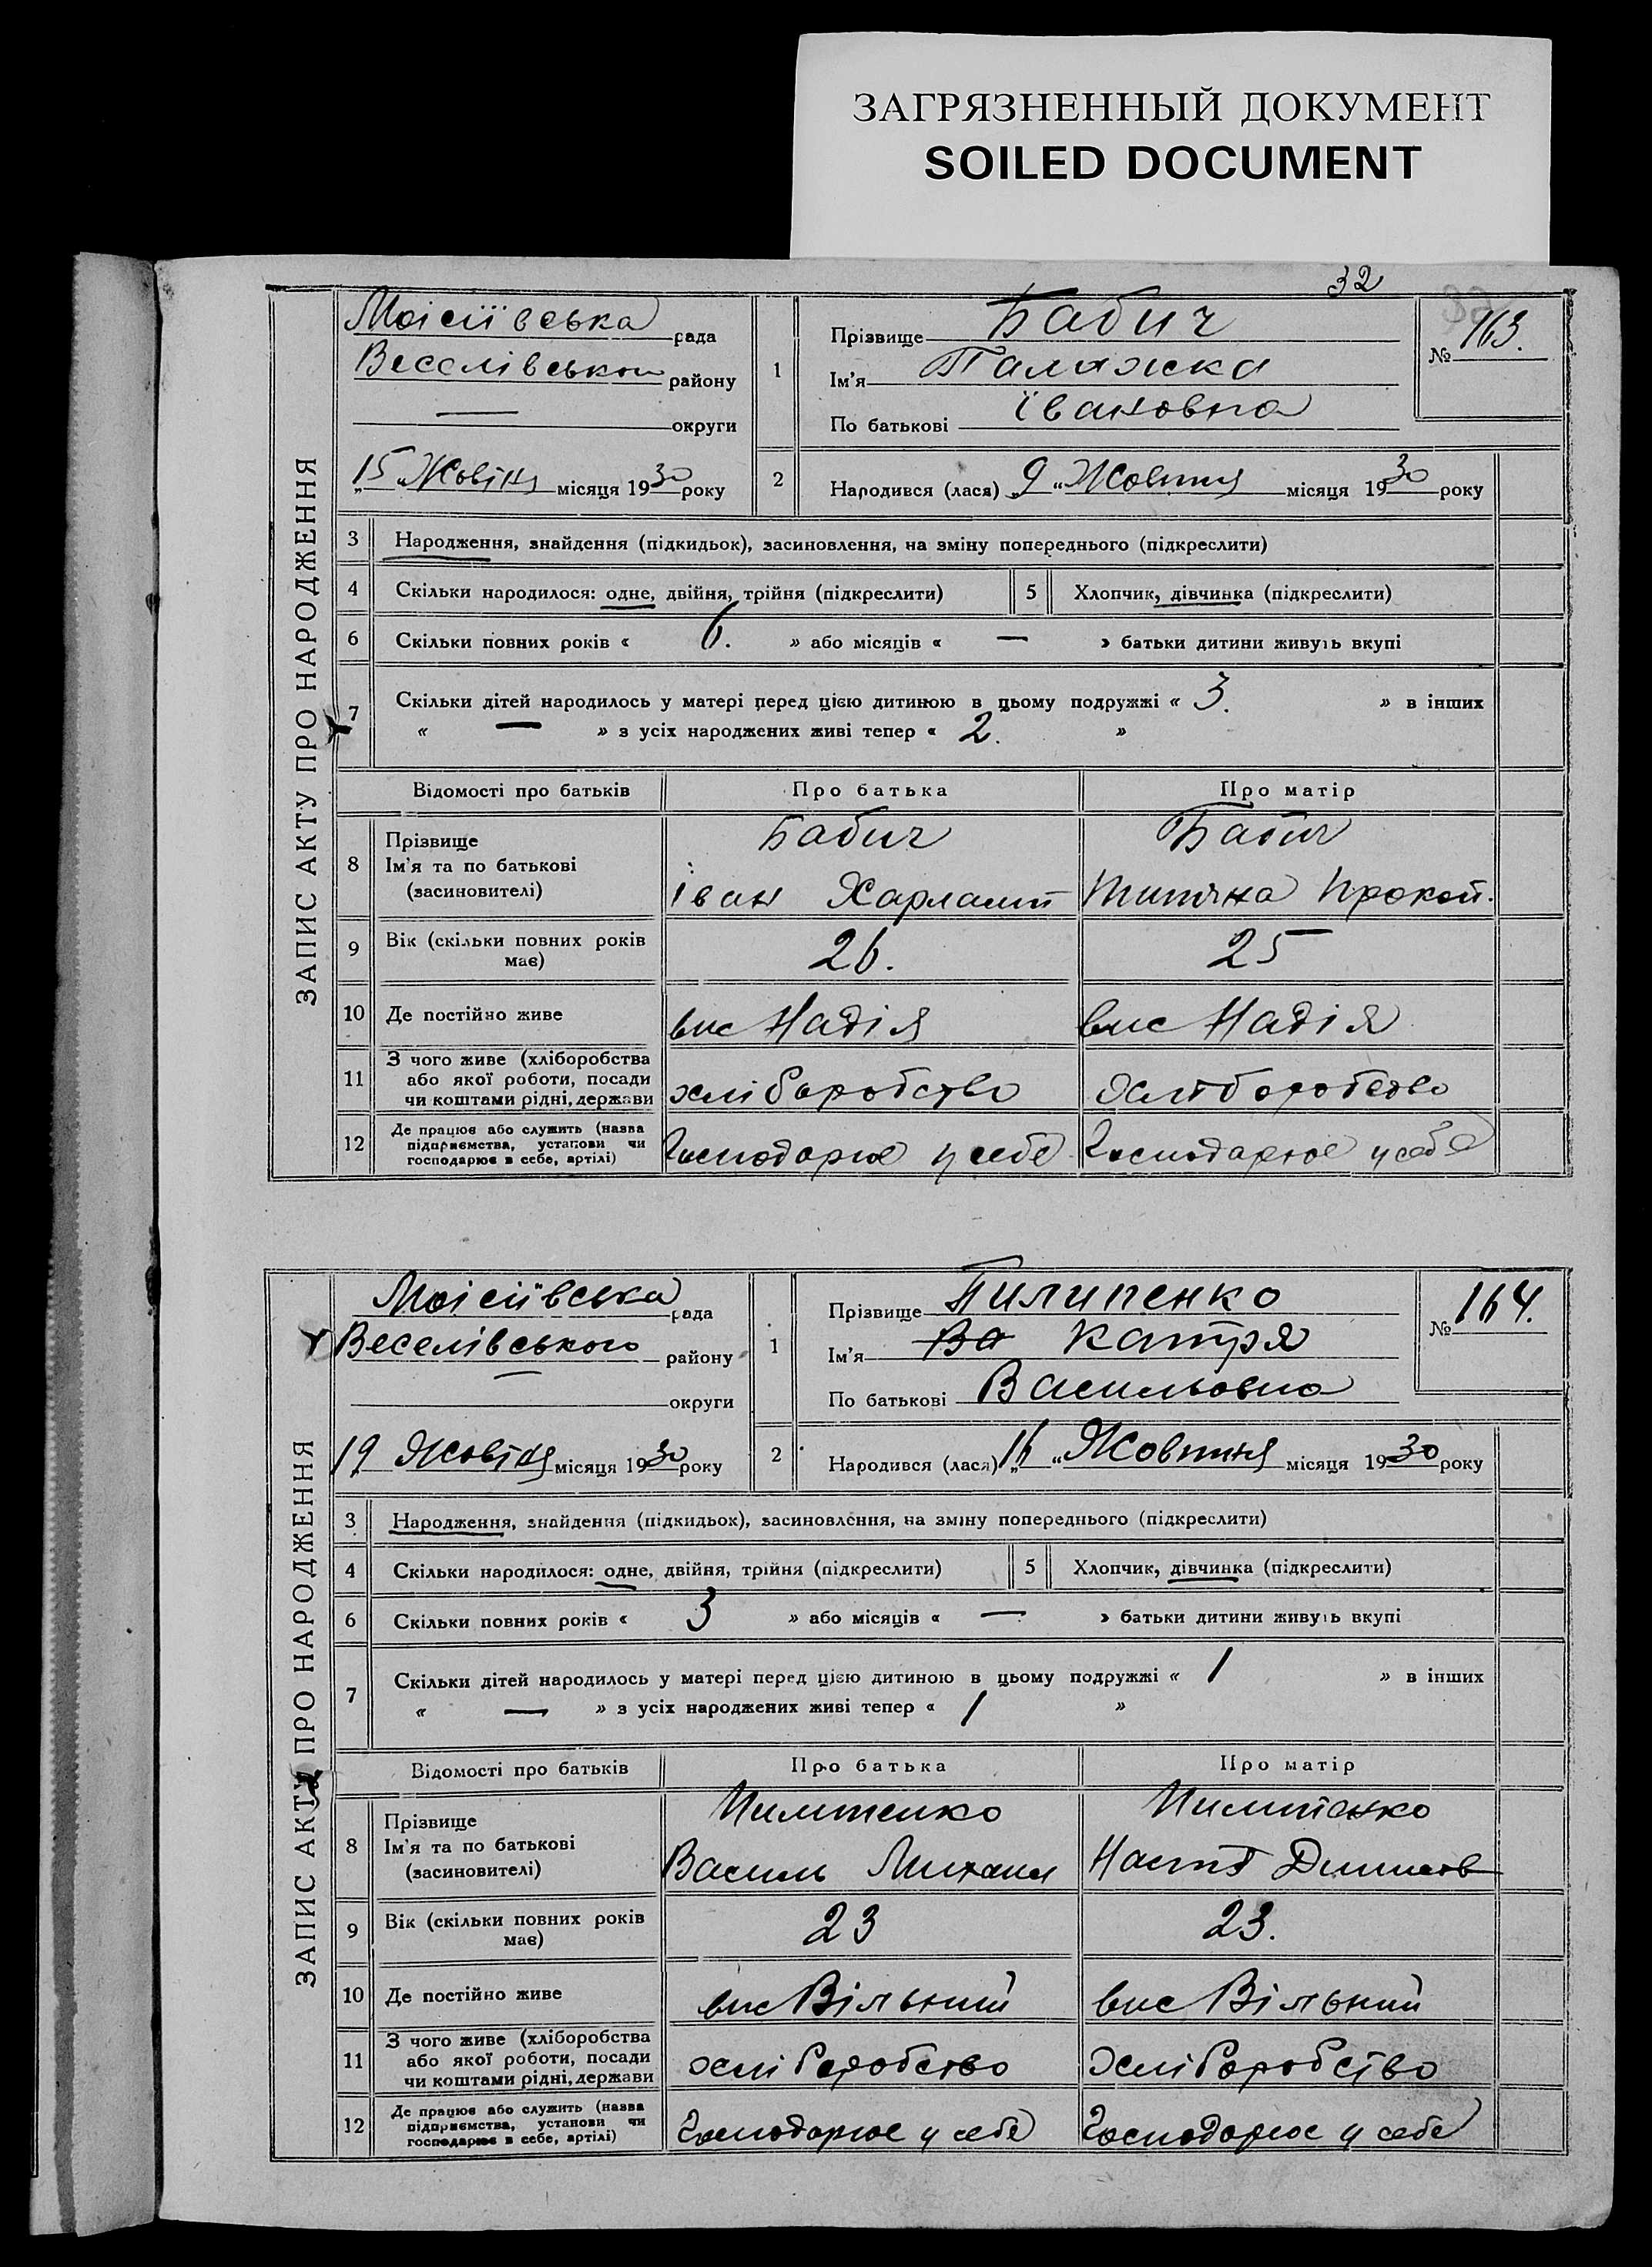 ЗАГРЯЗНЕННЫЙ ДОКУМЕНТ
SOILED DOCUMENT
32
ЗАПИС АКТУ ПРО НАРОДЖЕННЯ
Моісиївська рада
Веселівського району
— округи
15 "Жовтня місяця 1930 року
1
Прізвище Бабич
Ім'я Палажка
По батькові Івановна
№ 163.
2
Народився (лася) „9 " Жовтня місяця 1930 року
3 Народження, знайдення (підкидьок), засиновлення, на зміну попереднього (підкреслити)
4 Скільки народилося: одне, двійня, трійня (підкреслити) 5 Хлопчик, дівчинка (підкреслити)
6 Скільки повних років « 6. » або місяців « — » батьки дитини живуть вкупі
7 Скільки дітей народилось у матері перед цією дитиною в цьому подружжі « 3. » в інших
« — » з усіх народжених живі тепер « 2. »
Відомості про батьків Про батька Про матір
8 Прізвище Бабич Бабич
Ім'я та по батькові
(засиновителі) Іван Харламп Титяна Прокоп.
9 Вік (скільки повних років має) 26. 25
10 Де постійно живе вис Надія вис Надія
11 З чого живе (хліборобства
або якої роботи, посади
чи коштами рідні, держави хліборобство хліборобство
12 Де працює або служить (назва
підприємства, установи чи
господарює в себе, артілі) Господарює у себе Господарює у себе
ЗАПИС АКТУ ПРО НАРОДЖЕННЯ
Моісиївська рада
Веселівського району
— округи
19 Жовтня місяця 1930 року
1
Прізвище Пилипенко
Ім'я Ва Катря
По батькові Васильовна
№ 164.
2
Народився (лася) „16 " Жовтня місяця 1930 року
3 Народження, знайдення (підкидьок), засиновлення, на зміну попереднього (підкреслити)
4 Скільки народилося: одне, двійня, трійня (підкреслити) 5 Хлопчик, дівчинка (підкреслити)
6 Скільки повних років « 3 » або місяців « — » батьки дитини живуть вкупі
7 Скільки дітей народилось у матері перед цією дитиною в цьому подружжі « 1 » в інших
« — » з усіх народжених живі тепер « 1 »
Відомості про батьків Про батька Про матір
8 Прізвище Пилипенко Пилипенко
Ім'я та по батькові
(засиновителі) Василь Михаил Настя
9 Вік (скільки повних років має) 23 23.
10 Де постійно живе вис Вільний вис Вільний
11 З чого живе (хліборобства
або якої роботи, посади
чи коштами рідні, держави хліборобство хліборобство
12 Де працює або служить (назва
підприємства, установи чи
господарює в себе, артілі) Господарює у себе Господарює у себе